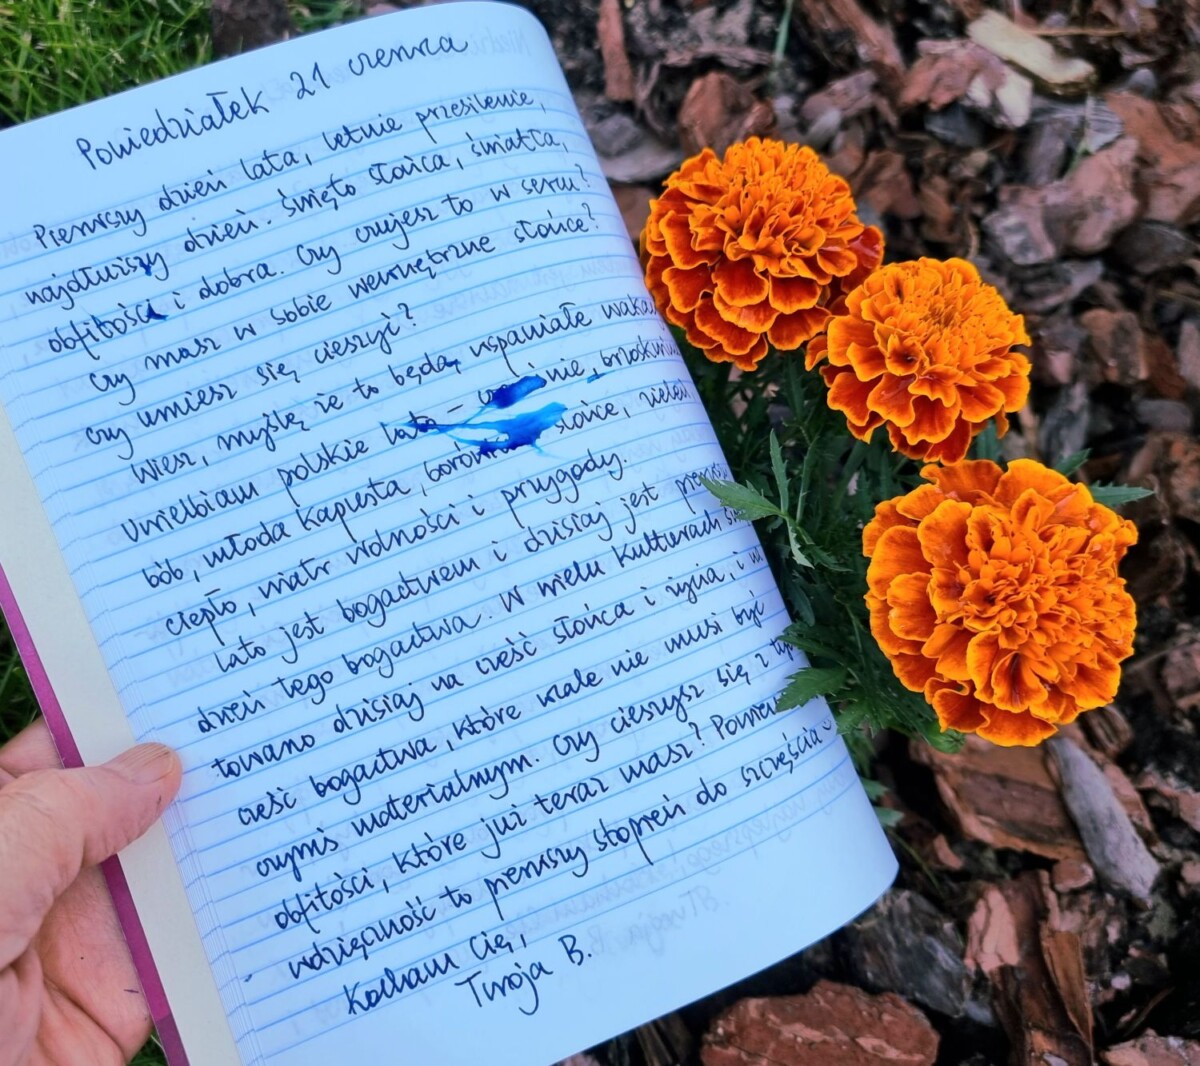 Poniedziałek 21 czerwca
Pierwszy dzień lata, letnie przesilenie,
najdłuższy dzień. Święto słońca, światła,
obfitości i dobra. Czy czujesz to w sercu?
Czy masz w sobie wewnętrzne słońce?
Czy umiesz się cieszyć?
Wiesz, myślę że to będą wspaniałe waka
Uwielbiam polskie lato - nie, brzoskwi
bób, młoda kapusta, borówki słońce, zieleń
ciepło, wiatr wolności i przygody.
Lato jest bogactwem i dzisiaj jest pierwszy
dzień tego bogactwa. W wielu kulturach
towano dzisiaj na cześć słońca i życia, i
cześć bogactwa, które wcale nie musi być
czymś materialnym. Czy cieszysz się z
obfitości, które już teraz masz?
wdzięczność to pierwszy stopień do szczęścia
Kocham Cię,
Twoja B.